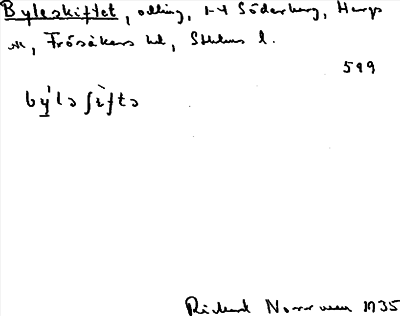 Byleskiftet, odling, 1-4 Söderberg, Hargs
sn, Frösåkers hd, Sthlms l.
599
by̍lə ʃìftə
Rickard Norrman 1935